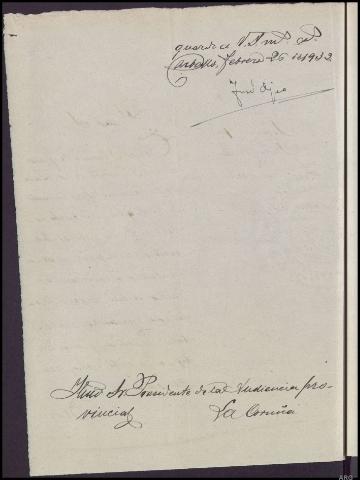 guarde a V.I. m.s a.s
Carballo, febrero 26 de 1933.
José
Ilmo Sr. Presidente de la Audiencia pro-
vincial La Coruña